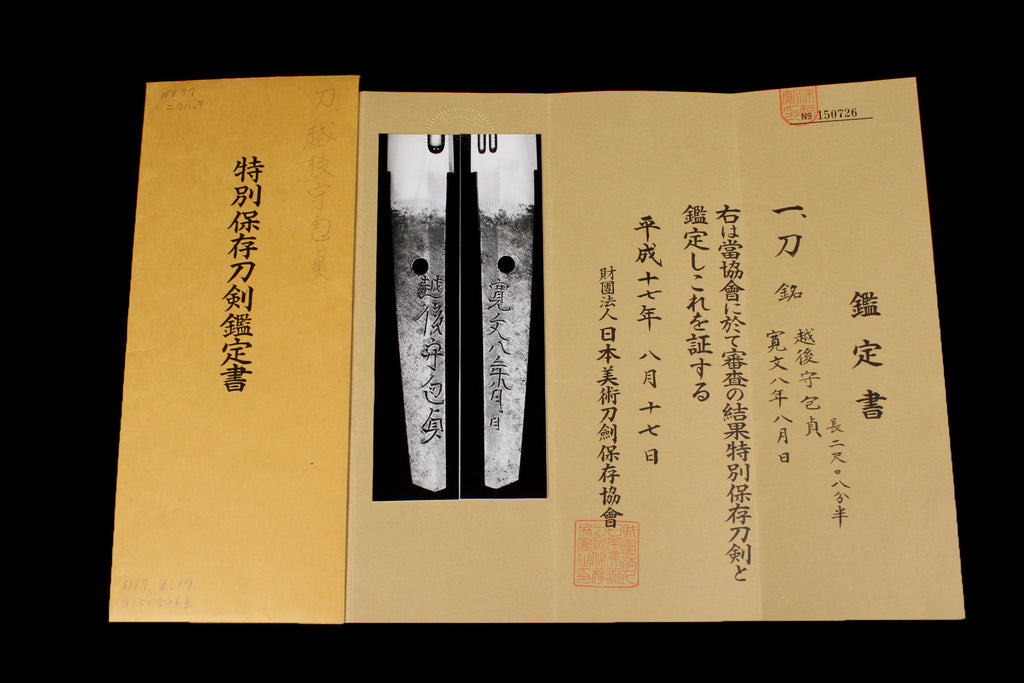 № 150726
鑑定書
一、刀 銘 越後守包貞
寛文八年八月日
長二尺〇八分半
右は當協會に於て審査の結果特別保存刀剣と
鑑定しこれを証する
平成十七年八月十七日
財團法人日本美術刀劍保存協會
越後守包貞
刀、越後守包貞
特別保存刀剣鑑定書
H17.8.17